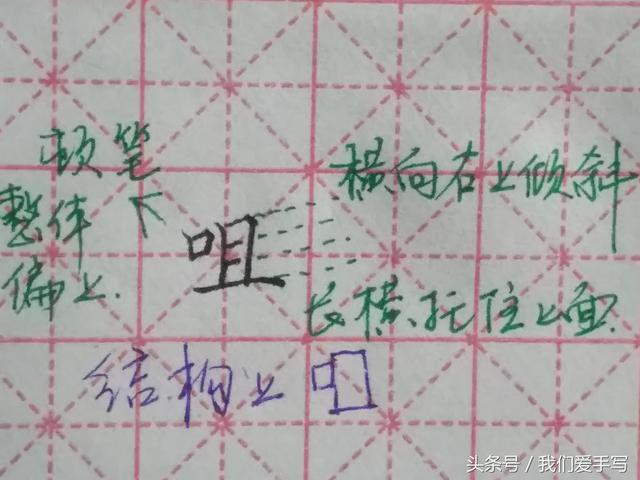 顿笔
横向右上倾斜
整体
偏上.
咀
长横托住上面.
结构上
头条号/我们爱手写